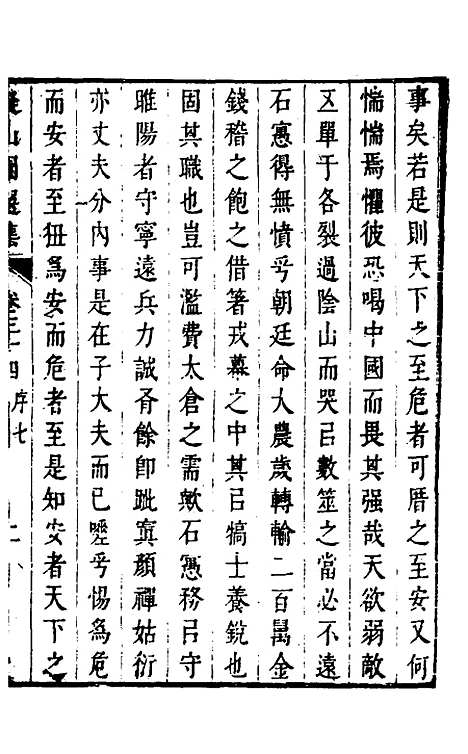 事矣若是則天下之至危者可厝之至安又何
惴惴焉懼彼恐喝中國而畏其强哉天欲弱敵
五單于各裂過陰山而哭㠯數筮之當必不遠
石憲得無憤乎朝廷命大農歲轉輸二百萬金
錢稽之飽之借箸戎幕之中其㠯犒士養銳也
固其職也豈可濫費太倉之需歟石憲務㠯守
睢陽者守寧遠兵力誠有餘卽踰寘顏禪姑衍
亦丈夫分內事是在子大夫而已噫乎惕為危
而安者至狃為安而危者至是知安者天下之
山園選集
卷三十四 序七
二